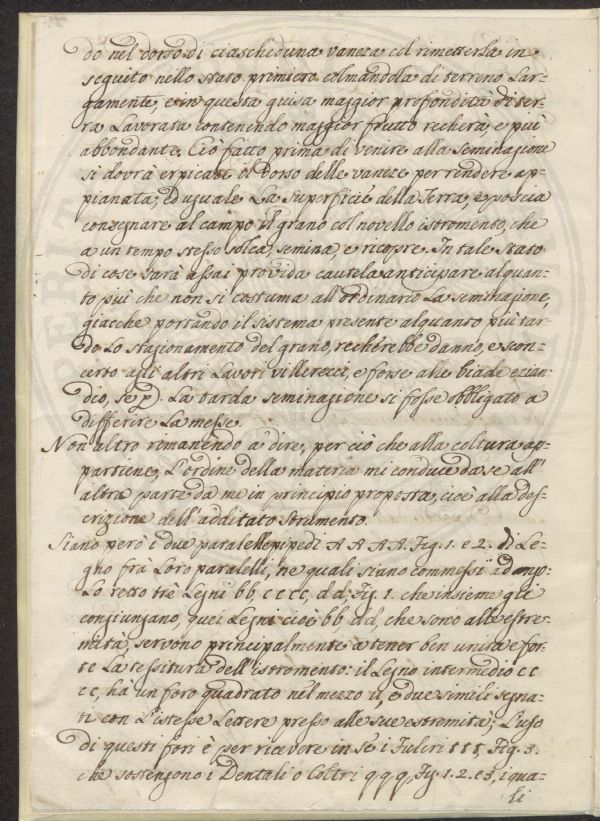 do nel dorso di ciascheduna vaneza col rimetterla in=
seguito nello stato primiero colmandola di terreno Lar=
gamente, e in questa guisa maggior profondità di ter=
ra Lavorata contenendo maggior frutto recherà, e più
abbondante. Ciò fatto prima di venire alla seminazione
si dovrà erpicare il dorso delle vaneze per rendere ap=
pianata, ed uguale La Superficie della Terra, e poscia
consegnare al campo il grano col novello istromento, che
a un tempo stesso solca, semina, e ricopre. In tale stato
di cose sarà assai provida cautela anticipare alquan=
to più che non si costuma all'ordinario La seminazione,
giacche portando il sistema presente alquanto più tar=
do Lo stagionamento del grano, recherebbe danno, e scon=
certo agli altri Lavori villerecci, e forse alle biade ezian=
dio, se p La tarda seminazione si fosse obbligato a
differire La messe.
Non altro rimanendo a dire, per ciò che alla coltura ap=
partiene, L'ordine della materia mi conduce da se all'
altra parte da me in principio proposta, cioè alla des=
crizione dell'additato strumento.
Siano però i due paralellepipedi A A A A. Fig. 1. e 2. di Le=
gno frà Loro paralelli, ne quali siano commessi ad ango=
Lo retto trè Legni bb, c c c c, d d, Fig. 1. che insieme gli
congiungano, quei Legni cioè bb, dd, che sono alle estre=
mità, servono principalmente a tener ben unita e for=
te La tessitura dell'istromento: il Legno intermedio c c
c c, hà un foro quadrato nel mezzo u, e due simili segna=
ti con L'istesse Lettere presso alle sue estremità; L'uso
di questi fori è per ricevere in sè i Fulcri t t t, Fig. 3.
che sostengono i Dentali o Coltri q q q, Fig. 1. 2. e 3, i qua=
li